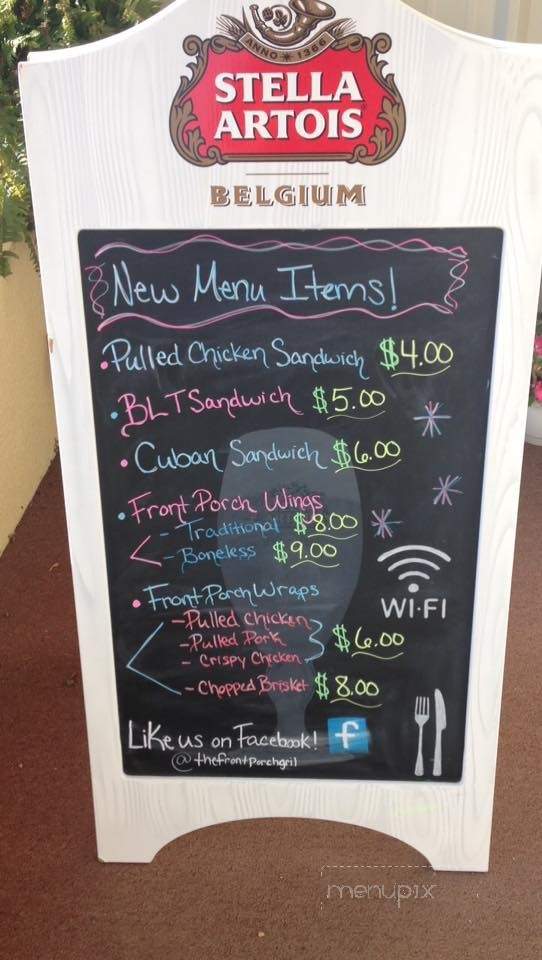 ANNO 1366
STELLA
ARTOIS
BELGIUM
New Menu Items!
• Pulled Chicken Sandwich $4.00
• BLT Sandwich $5.00
• Cuban Sandwich $6.00
• Front Porch Wings
- Traditional $8.00
- Boneless $9.00
• Front Porch Wraps
- Pulled Chicken
- Pulled Pork $6.00
- Crispy Chicken
- Chopped Brisket $8.00
WI-FI
Like us on Facebook! f
@thefrontporchgril
menupix